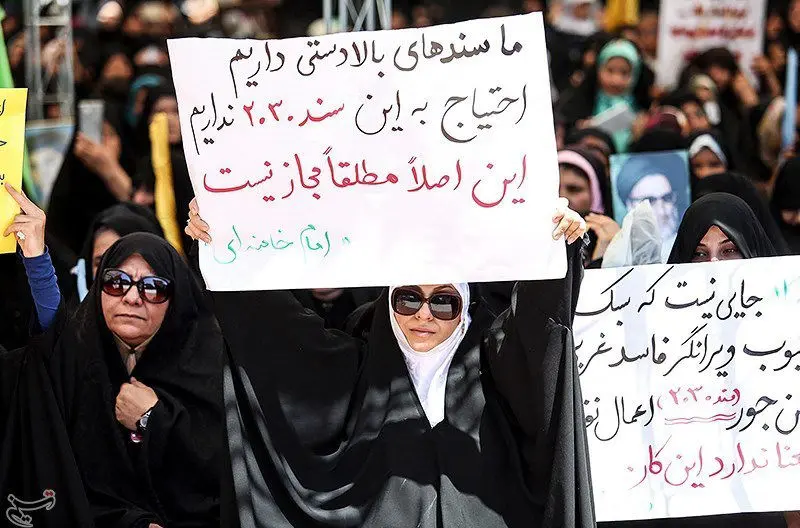 ما سندهای بالادستی داریم
احتیاج به این سند ۲۰۳۰ نداریم
این اصلاً مطلقاً مجاز نیست
امام خامنه ای
جایی نیست که سبک
ویرانگر فاسد غربی
جور (سند ۲۰۳۰) اعمال
معنا ندارد این کار.
تسنیم